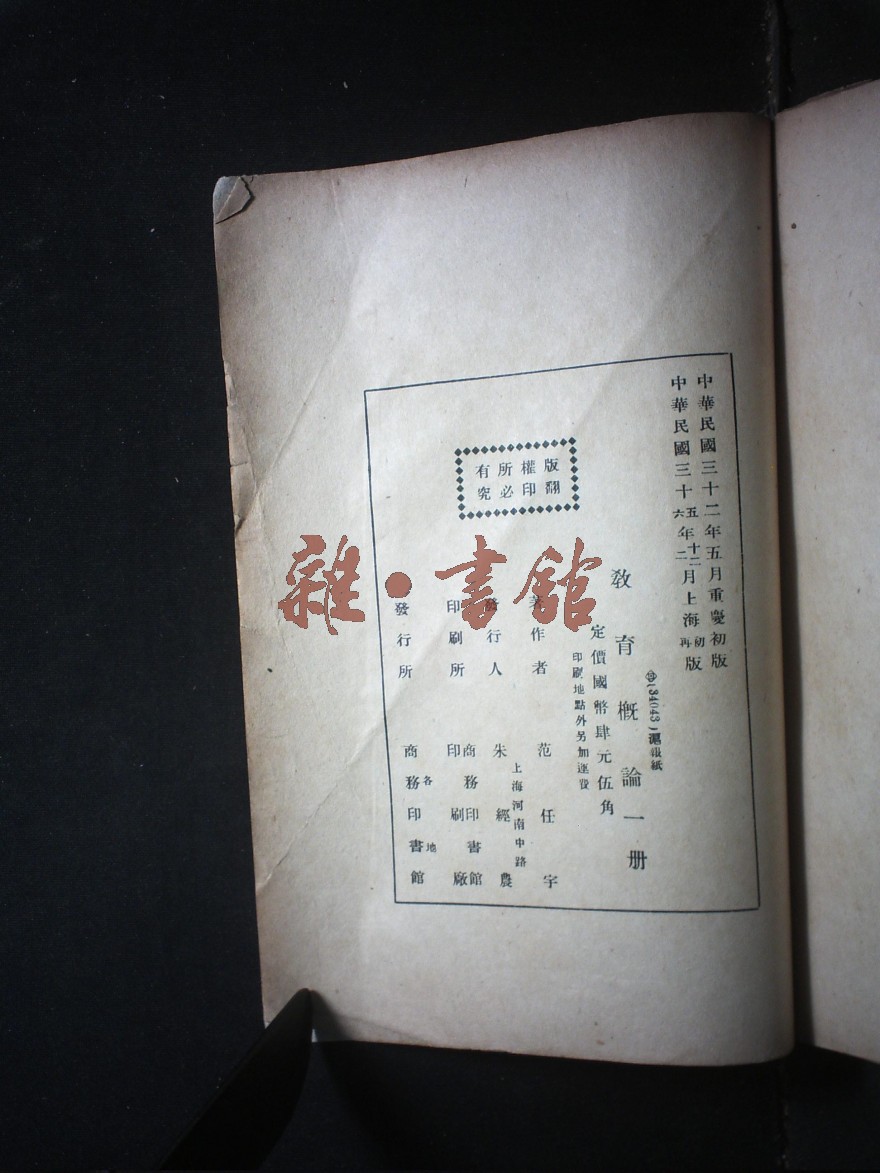 中華民國三十二年五月重慶初版
中華民國三十五年十二月上海初版
六年二月 再版
(34043)滬報紙
教育概論一册
定價國幣肆元伍角
印刷地點外另加運費
版權所有
翻印必究
著作者 范任宇
上海河南中路
發行人 朱經農
印刷所 商務印書館印刷廠
發行所 各地 商務印書館
雜·書館